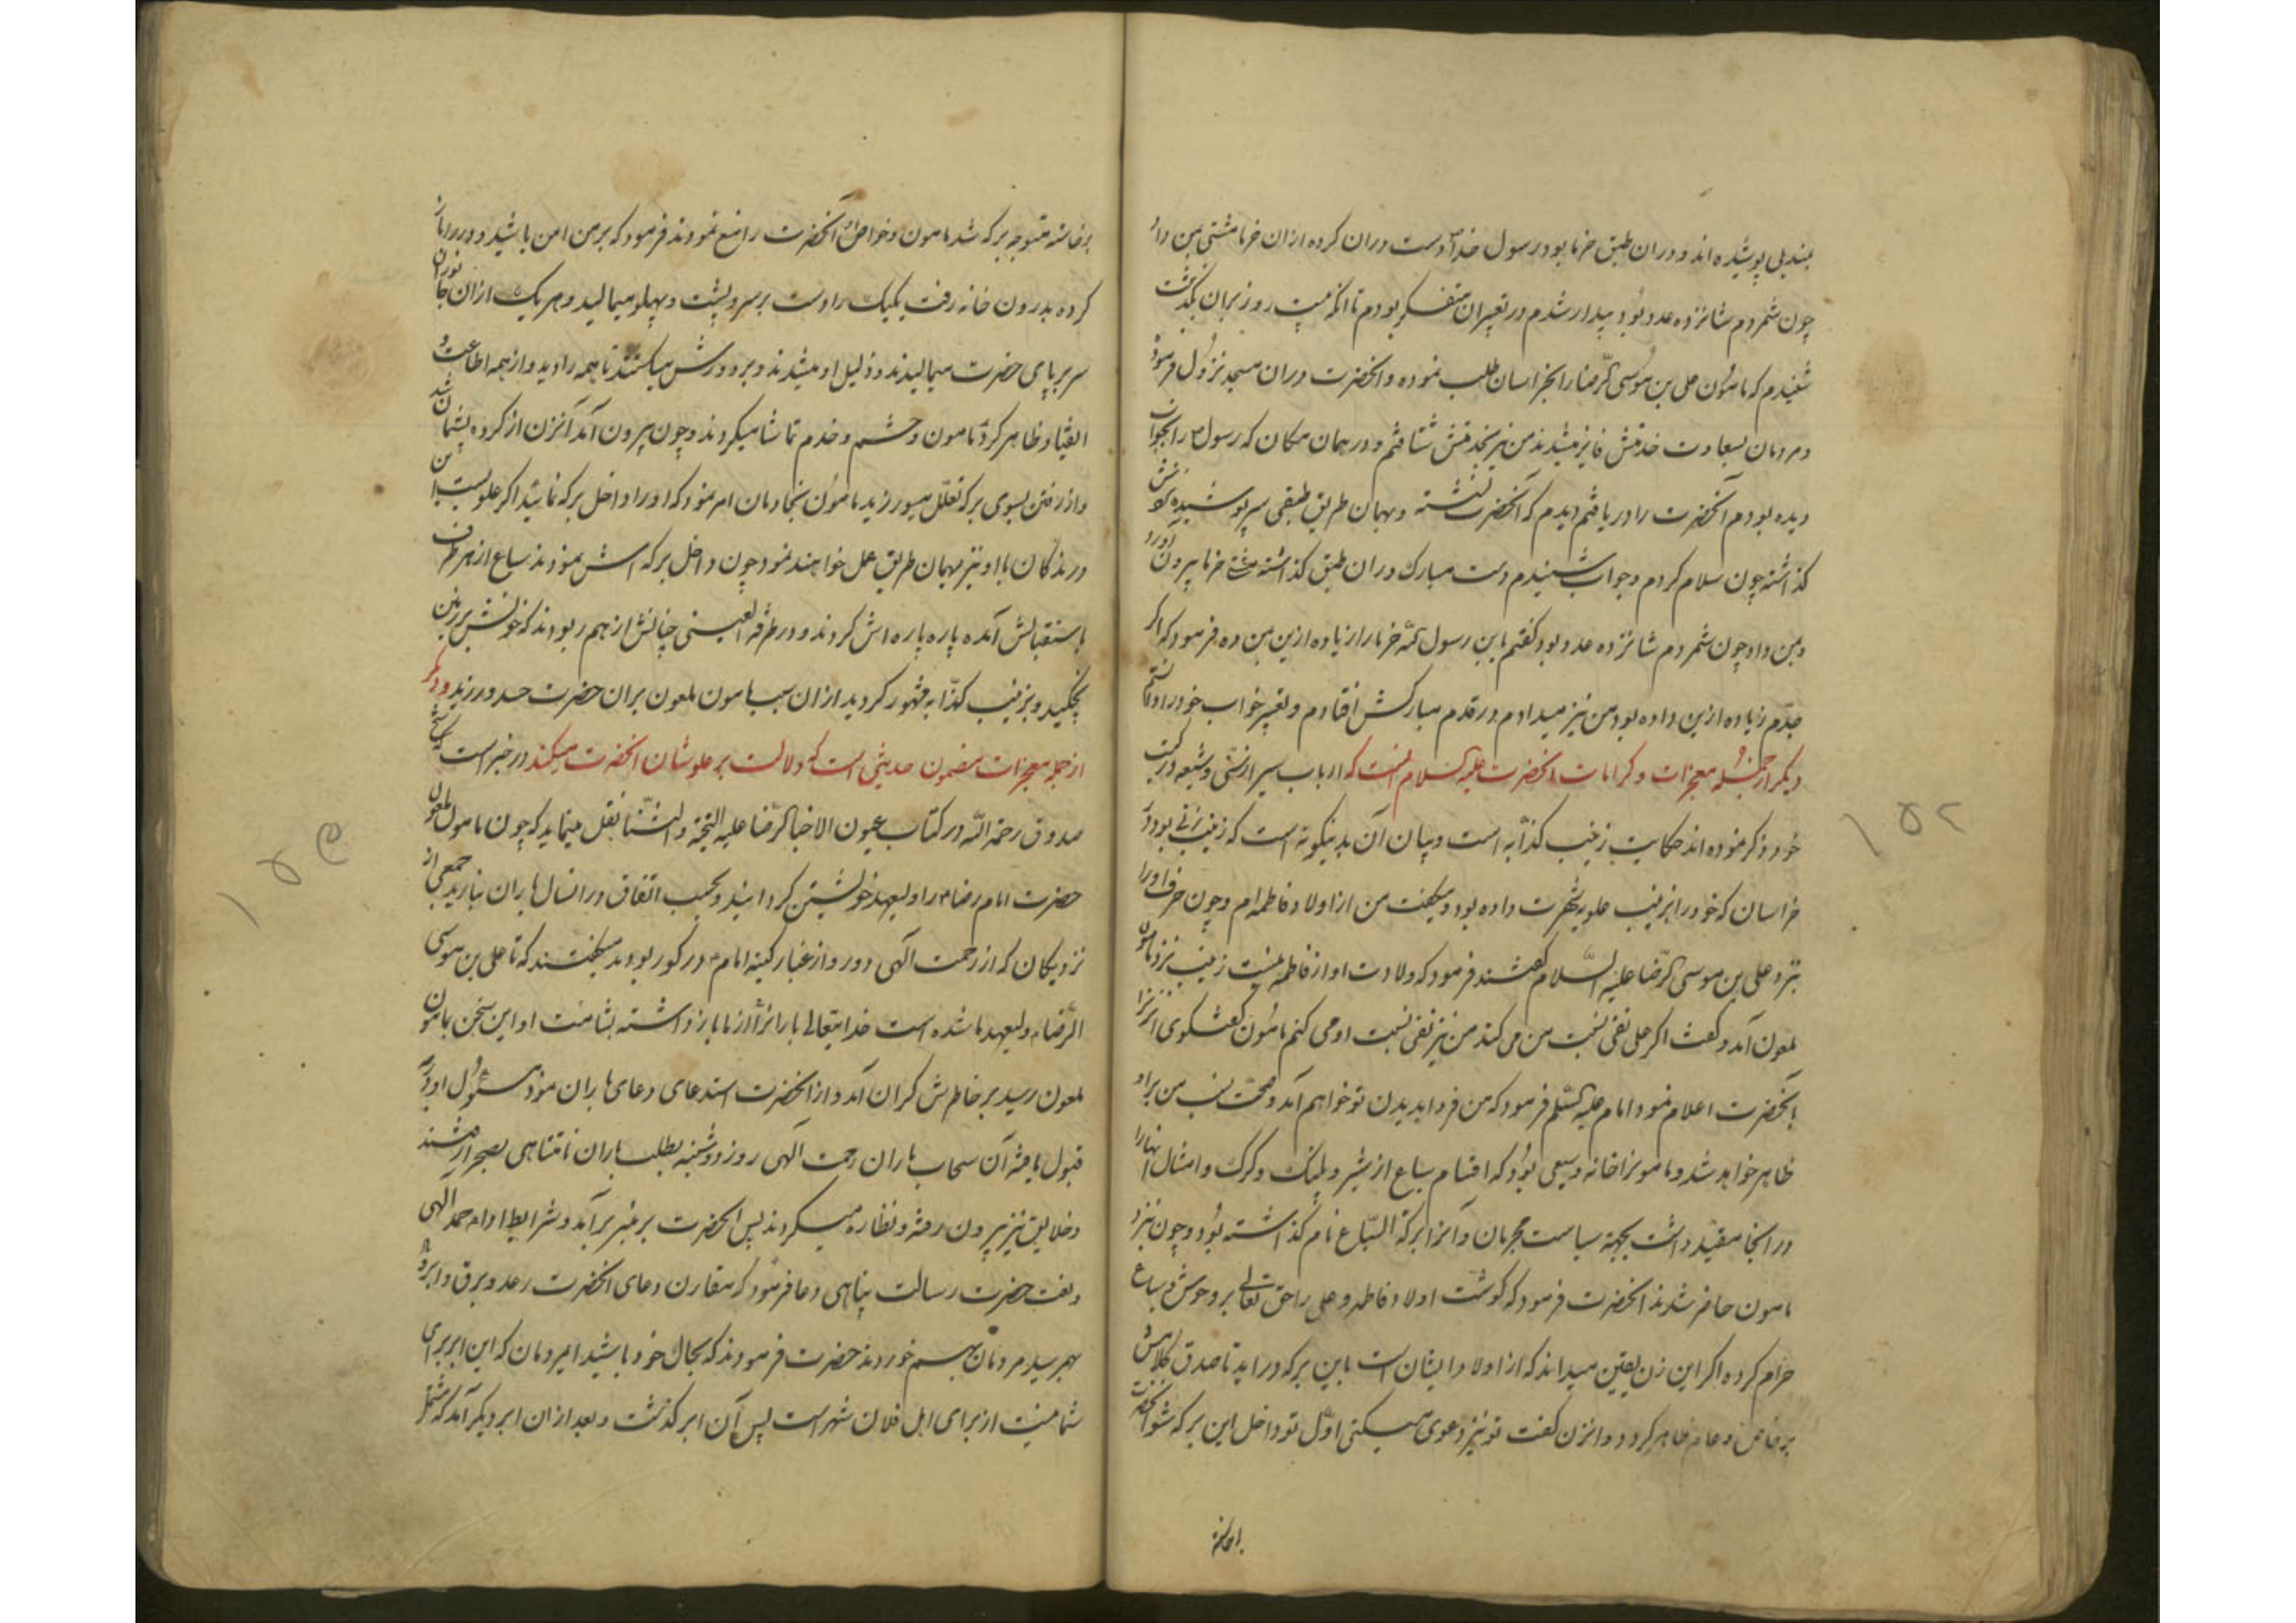 بمندیلی پوشیده اند و در ان طبق خرما بود رسول خدا دست در ان کرده از ان خرما مشتی بمن داد
چون شمردم شانزده عدد بود بیدار شدم در تعبیر ان متفکر بودم تا انکه بیست روز بران بگذشت
شنیدم که مامون علی بن موسی الرضا را بخراسان طلب نموده و انحضرت در ان مسجد نزول فرموده
و مردمان بسعادت خدمتش فایز میشدند من نیز بخدمتش شتافتم و در همان مکان که رسول را بخواب
دیده بودم آنحضرت را دریافتم دیدم که آنحضرت نشسته و بهمان طریق طبقی سرپوشیده
کذاشته چون سلام کردم و جواب شنیدم دست مبارک در ان طبق کذاشته مشتی خرما بیرون آورد
و بمن داد چون شمردم شانزده عدد بود کفتم یا بن رسول الله خرما را زیاده ازین بمن ده فرمود که اکر
جدم زیاده ازین داده بود من نیز میدادم در قدم مبارکش افتادم و تعبیر خواب خود را دانستم
دیکر از جمله معجزات و کرامات انحضرت علیه السلام انست که ارباب سیر از سنی و شیعه در کتب
خود ذکر نموده اند حکایت زینب کذابه است و بیان آن بدینکونه است که زینب زنی بود در
خراسان که خود را بزینب علویه شهرت داده بود و میکفت من از اولاد فاطمه ام و چون حرف او را
بنزد علی بن موسی الرضا علیه السلام کفتند فرمود که ولادت او از فاطمه نیست زینب نزد مامون
ملعون آمد و کفت اکر علی نفی نسبت من می کند من نیز نفی نسبت او می کنم مامون کفتکوی انزنرا
بانحضرت اعلام نمود امام علیه السلم فرمود که من فردا بدیدن تو خواهم آمد و صحت نسب من براو
ظاهر خواهد شد و مامونرا خانه وسیعی بود که اقسام سباع از شیر و پلنک و کرک و امثال انها را
در انجا مقید داشت بجهة سیاست مجرمان و آنرا برکة السباع نام کذاشته بود و چون بنزد
مامون حاضر شدند انحضرت فرمود که کوشت اولاد فاطمه و علی را حق تعالی بر وحوش و سباع
حرام کرده اکر این زن یقین میداند که از اولاد ایشان است باین برکه دراید تا صدق کلامش
بر خاص و عام ظاهر کردد و انزن کفت تو نیز دعوی میکنی اول تو داخل این برکه شو انحضرت
برخاسته
برخاسته متوجه برکه شد مامون و خواص آنحضرت را منع نمودند فرمود که بر من امن باشید و در را باز
کرده بدرون خانه رفت یکیک را دست بر سر و پشت و پهلو میمالید و هر یک از ان جانوران
سر بر پای حضرت میمالیدند و ذلیل او میشدند و بر دورش میکشتند تا همه را دید و از همه اطاعت و
انقیاد ظاهر کرد مامون و حشم و خدم تماشا میکردند و چون بیرون آمد آنزن از کرده پشیمان شد
و از رفتن بسوی برکه تعلل میورزید مامون بخادمان امر نمود که او را داخل برکه نمائید اکر علویست این
درندکان با او نیز بهمان طریق عمل خواهند نمود چون داخل برکه اش نمودند سباع از هر طرف
باستقبالش آمده پاره پاره اش کردند و در طرفة العینی چنانش از هم ربودند که خونش بر زمین
نچکید و بزینب کذابه مشهور کردید از ان سبب مامون ملعون بران حضرت حسد ورزید و دیکر
از جمله معجزات مضمون حدیثی است که دلالت بر علو شان انحضرت میکند در خبر است که شیخ
صدوق رحمه الله در کتاب عیون الاخبار الرضا علیه التحیة و الثنا نقل مینماید که چون مامون ملعون
حضرت امام رضا را ولیعهد خویشتن کردانید و بحسب اتفاق در انسال باران نبارید جمعی از
نزدیکان که از رحمت الهی دور و از غبار کینه امام در کور بودند میکفتند که تا علی بن موسی
الرضا ولیعهد ما شده است خدایتعالی بارانرا از ما باز داشته بشامت او این سخن بمامون
ملعون رسید بر خاطرش کران آمد و از انحضرت استدعای دعای باران نمود مسئول او درجه
قبول یافته آن سحاب باران رحمت الهی روز دوشنبه بطلب باران نامتناهی بصحرا رفتند
و خلایق نیز بیرون رفته و نظاره میکردند پس انحضرت بر منبر برآمد و شرایط ادای حمد الهی
و نعت حضرت رسالت پناهی و دعا فرمود که مقارن دعای انحضرت رعد و برق و ابر و
بهم رسید مردمان بهم خوردند حضرت فرمودند که بحال خود باشید ایمردمان که این ابر برای
شما نیست از برای اهل فلان شهر است پس آن ابر کذشت و بعد از ان ابر دیکر آمد که مشتمل